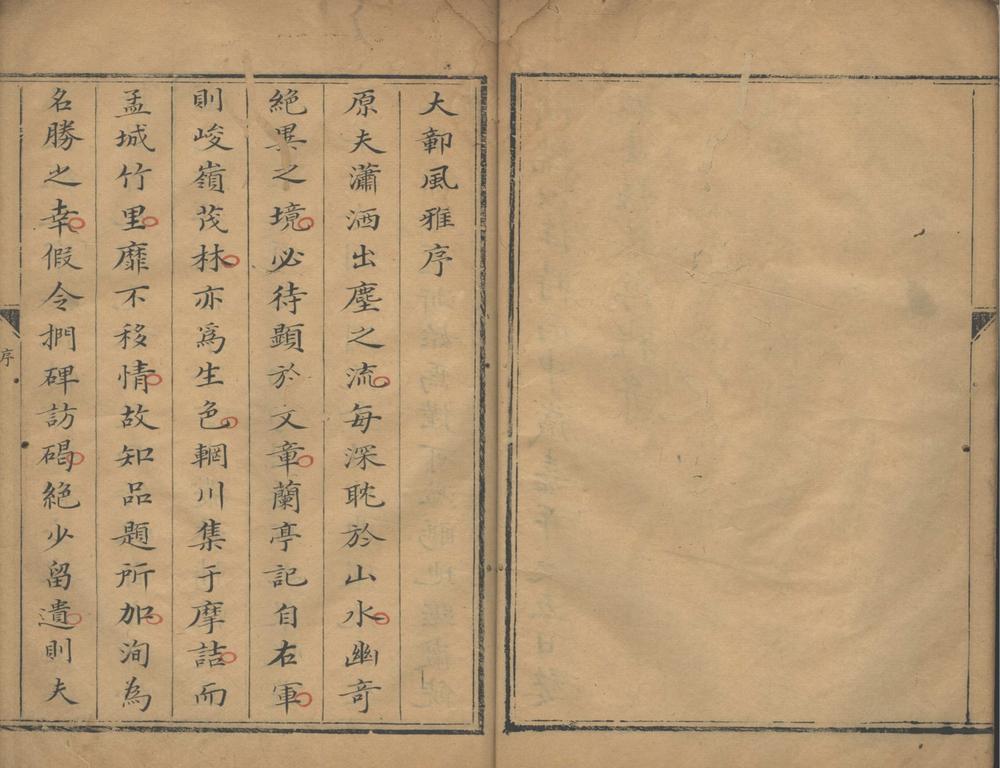 大鄣風雅序
原夫瀟洒出塵之流每深耽於山水幽奇
絶異之境必待顯於文章蘭亭記自右軍
則峻嶺茂林亦爲生色輞川集于摩詰而
孟城竹里靡不移情故知品題所加洵為
名勝之幸假令捫碑訪碣絶少留遺則夫
序